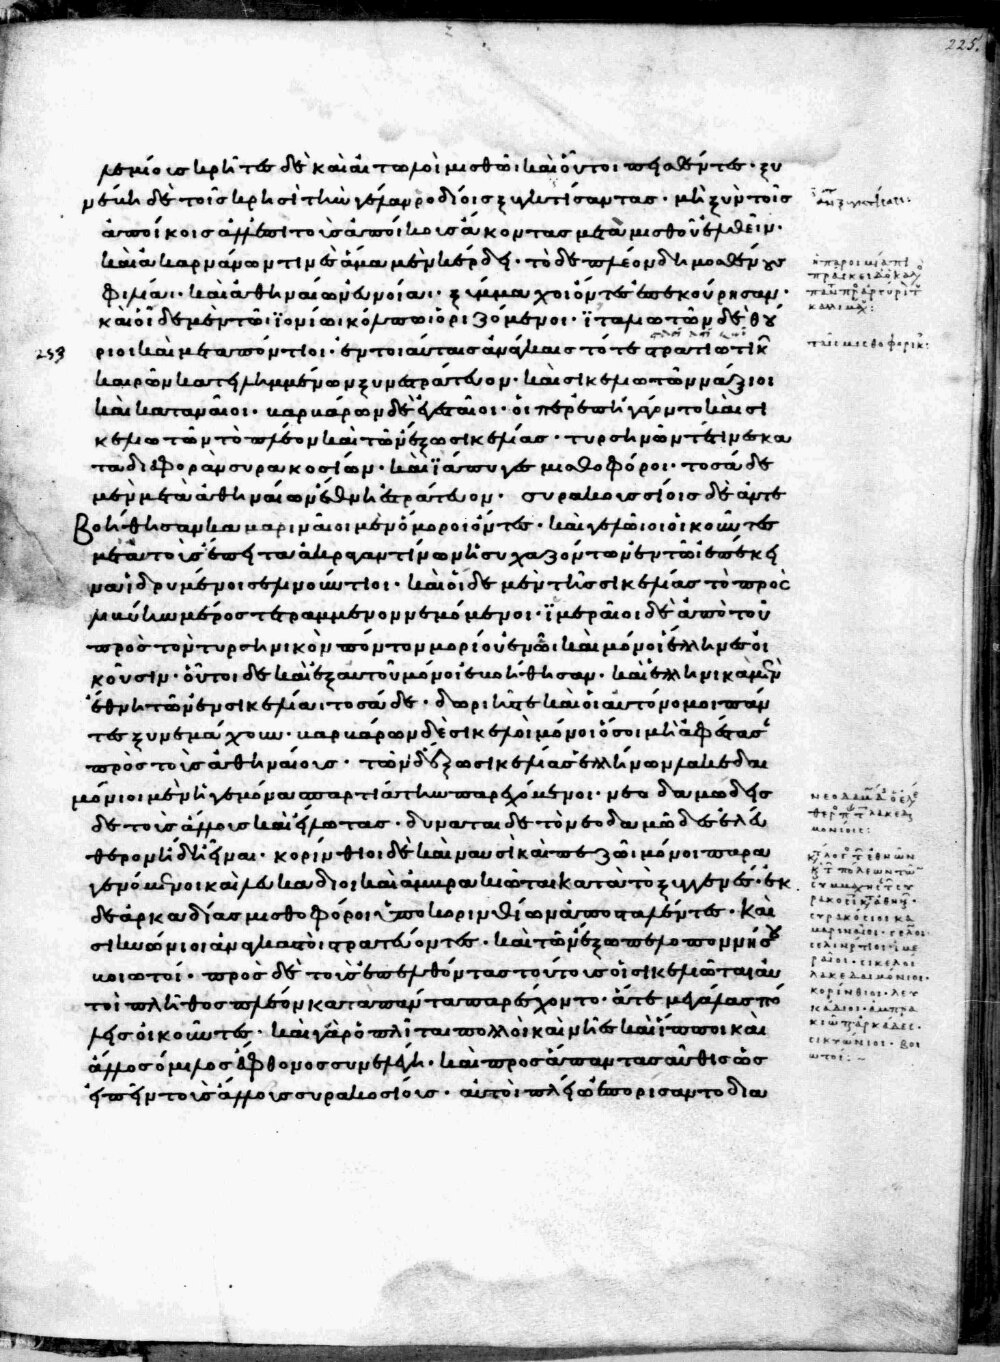 225.
λεμίοις κρῆτες δὲ καὶ αἰτωλοὶ μισθῶι καὶ οὗτοι πεισθέντες· ξυ
νέβη δὲ τοῖς κρησὶ τὴν γέλαν ῥοδίοις ξυγκτίσαντας· μὴ ξὺν τοῖς
ἀποίκοις ἀλλ' ἐπὶ τοὺς ἀποίκους ἄκοντας μετὰ μισθοῦ ἐλθεῖν·
καὶ ἀκαρνάνων τινὲς ἅμα μὲν κέρδει· τὸ δὲ πλέον δημοσθένους
φιλίαι· καὶ ἀθηναίων εὐνοίαι· ξύμμαχοι ὄντες ἐπεκούρησαν·
καὶ οἵδε μὲν τῶι ϊονίωι κόλπωι ὁριζόμενοι· ϊταλιωτῶν δὲ θού
253 ριοι καὶ μεταπόντιοι· ἐν τοιαύταις ἀνάγκαις τότε στρατιωτικῶν
καιρῶν κατειλημμένων ξυνεστράτευον· καὶ σικελιωτῶν νάξιοι
καὶ καταναῖοι· βαρβάρων δὲ ἐγεσταῖοι· οἵπερ ἐπηγάγοντο καὶ σι
κελιωτῶν τὸ πλέον καὶ τῶν ἔξω σικελίας· τυρσηνῶν τέ τινες κα
τὰ διαφορὰν συρακοσίων· καὶ ϊάπυγες μισθοφόροι· τοσάδε
μὲν μετὰ ἀθηναίων ἔθνη ἐστράτευον· συρακουσσίοις δὲ ἀντε
βοήθησαν καμαριναῖοι μὲν ὅμοροι ὄντες· καὶ γελῶιοι οἰκοῦντες
μετ' αὐτοὺς ἔπειτα ἀκραγαντίνων ἡσυχαζόντων ἐν τῶι ἐπέκει
να ἱδρυμένοι σελινούντιοι· καὶ οἵδε μὲν τῆς σικελίας τὸ πρὸς
λιβύην μέρος τετραμμένον νεμόμενοι· ϊμεραῖοι δὲ ἀπὸ τοῦ
πρὸς τὸν τυρσηνικὸν πόντον μορίου ἐν ῶι καὶ μόνοι ἕλληνες οἰ
κοῦσιν· οὗτοι δὲ καὶ ἐξ αὐτοῦ μόνοι ἐβοήθησαν· καὶ ἑλληνικὰ μὲν
ἔθνη τῶν ἐν σικελίαι τοσάδε· δωριῆς τε καὶ οἱ αὐτόνομοι πάν
τες ξυνεμάχουν· βαρβάρων δὲ σικελοὶ μόνοι ὅσοι μὴ ἀφέστασαν
πρὸς τοὺς ἀθηναίους· τῶν δ' ἔξω σικελίας ἑλλήνων λακεδαι
μόνιοι μὲν ἡγεμόνα σπαρτιάτην παρεχόμενοι· νεοδαμώδεις
δὲ τοὺς ἄλλους καὶ εἵλωτας· δύναται δὲ τὸ νεοδαμῶδες ἐλεύ
θερον ἤδη εἶναι· κορίνθιοι δὲ καὶ ναυσὶ καὶ πεζῶι μόνοι παρα
γενόμενοι καὶ λευκάδιοι καὶ ἀμπρακιῶται κατὰ τὸ ξυγγενές· ἐκ
δὲ ἀρκαδίας μισθοφόροι ὑπὸ κορινθίων ἀποσταλέντες· καὶ
σικυώνιοι ἀναγκαστοὶ στρατεύοντες· καὶ τῶν ἔξω πελοποννήσου
βοιωτοί· πρὸς δὲ τοὺς ἐπελθόντας τούτους οἱ σικελιῶται αὐ
τοὶ πλῆθος πλέον κατὰ πάντα παρέσχοντο· ἅτε μεγάλας πό
λεις οἰκοῦντες· καὶ γὰρ ὁπλῖται πολλοὶ καὶ νῆες καὶ ἵπποι καὶ
ἄλλος ὅμιλος ἄφθονος συνελέγη· καὶ πρὸς ἅπαντας αὖθις ὡς
εἰπεῖν τοὺς ἄλλους συρακόσιοι οἱς· αὐτοὶ πλείω ἐπορίσαντο διὰ
νεοδαμ
λακεδ
μονιοις:
πόλεων
μαρινᾶιοι· γελῶι
σελινούντιοι· ἱμε
ραῖοι· σικελοί
λακεδαιμόνιοι·
κορίνθιοι· λευ
κάδιοι· ἀμπρα
κιῶται ἀρκάδες·
σικυώνιοι· βοι
ωτοί:~